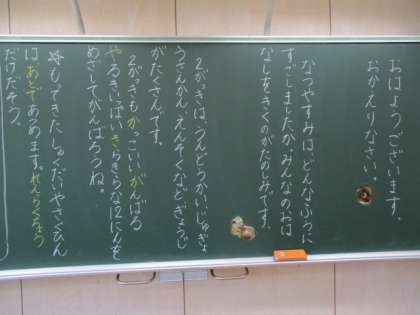 おはようございます。
おかえりなさい。
なつやすみは、どんなふうに
すごしましたか。みんなのおは
なしをきくのがたのしみです。
2がっきは、うんどうかい、じゅぎょ
うさんかん、えんそくなどぎょうじ
がたくさんです。
2がっきもかっこいいがんばる
やるきいっぱいきらきらな12にんを
めざしてがんばろうね。
もってきたしゅくだいやさくひん
は、あとであつめます。れんらくちょう
だけだそう。